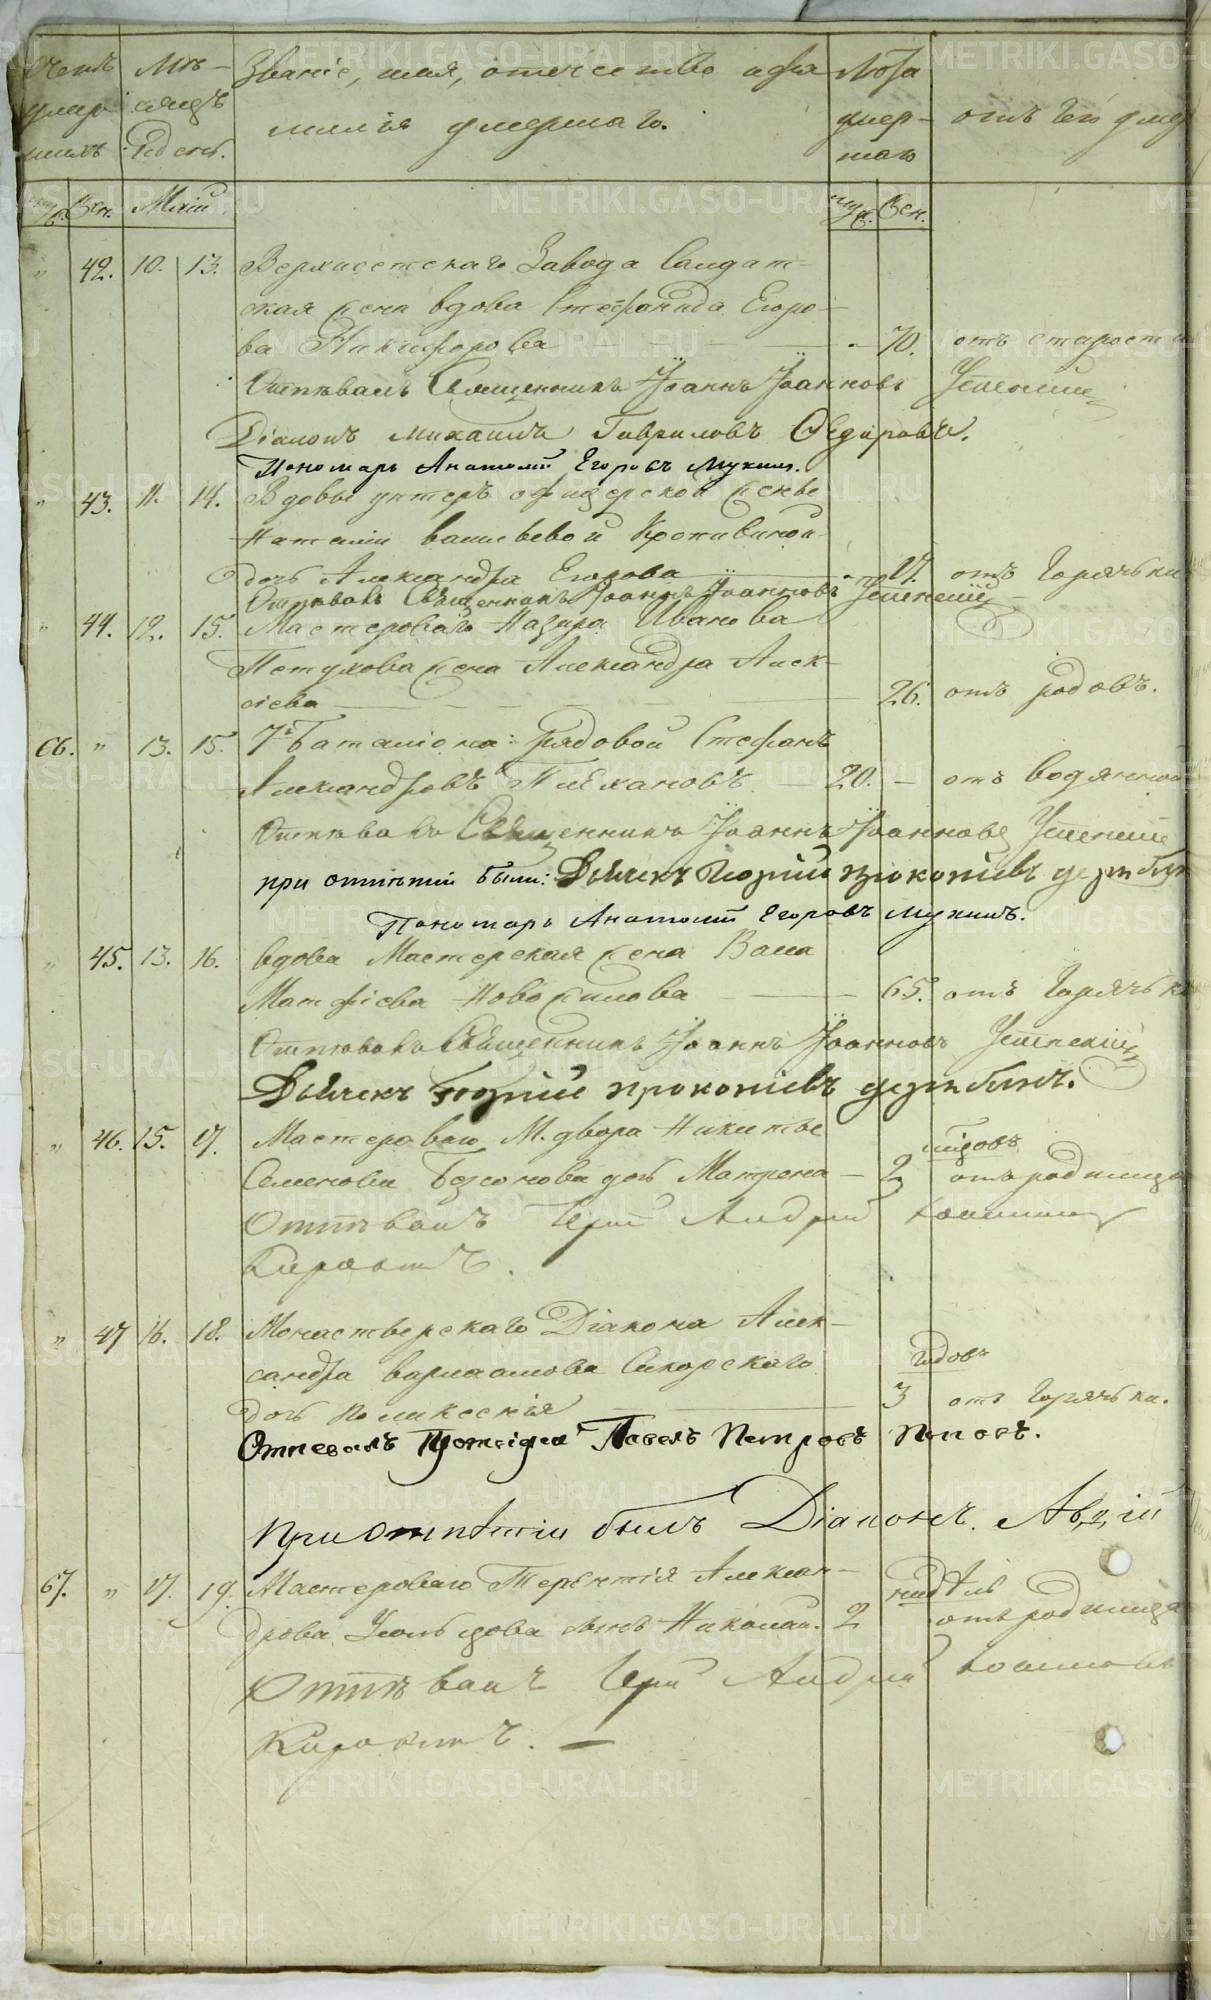 Счетъ умер шихъ
Мѣ- сяцъ и день.
Званіе, имя, отечество и фа
милія умершаго.
Лѣта умер- шаго
отъ чего умер
муж. жен. Май муж. жен.
" 42. 10. 13. Верхисетскаго Завода Салдат-
ская жена вдова Стефанида Егоро-
ва Никифорова - 70. отъ старости
Отпѣвалъ Священникъ Іоаннъ Іоанновъ Успенскій
Діаконъ Михаилъ Гавриловъ Ѳедоровъ.
Пономарь Анатолій Егоровъ Мухинъ.
" 43. 11. 14. Вдовы унтеръ офицерской жены
Наталіи Васильевой Кропивиной
дочь Александра Егорова 17. отъ Горячьки
Отпѣвалъ Священникъ Іоаннъ Іоанновъ Успенскій
" 44. 12. 15. Мастероваго Назара Иванова
Петухова жена Александра Алек-
сіева 26. отъ родовъ.
66. " 13. 15. 7го Баталіона Рядовой Стефанъ
Александровъ Плехановъ 20. - отъ водянной
Отпѣвалъ Священникъ Іоаннъ Іоанновъ Успенскій
при отпѣтіи были: Дьячекъ Георгій Прокопіевъ
Пономарь Анатолій Егоровъ Мухинъ.
" 45. 13. 16. вдова Мастерская жена
Матфіева Новожилова 65. отъ Горячьки
Отпѣвалъ Священникъ Іоаннъ Іоанновъ Успенскій
Дьячекъ Георгій Прокопіевъ
" 46. 15. 17. Мастероваго М. двора Никиты
Семенова Безсонова дочь Матрена - 2 годовъ отъ родимца
Отпѣвалъ Іерей Андрей
" 47 16. 18. Монастырскаго Діакона Алек-
сандра Варлаамова Сикорскаго годовъ
дочь Поликсенія 3 отъ Горячьки.
Отпевалъ Протоіерей Павелъ Петровъ Поповъ.
При отпѣтіи былъ Діаконъ
67. " 17. 19. Мастероваго Терентія Алексан-
дрова сынъ Николай. 2 недѣль отъ родимца
Отпѣвалъ Іерей Андрей
METRIKI.GASO-URAL.RU